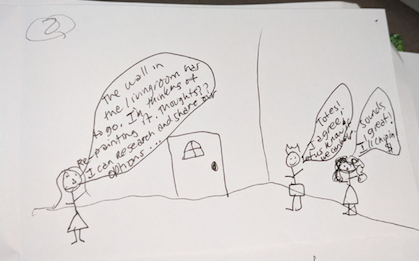 2
The wall in
the livingroom has
to go. I'm thinking of
Repainting it. Thoughts??
I can research and share our
options...
Totes!
I agree!
Sounds
great!
I'll chip in